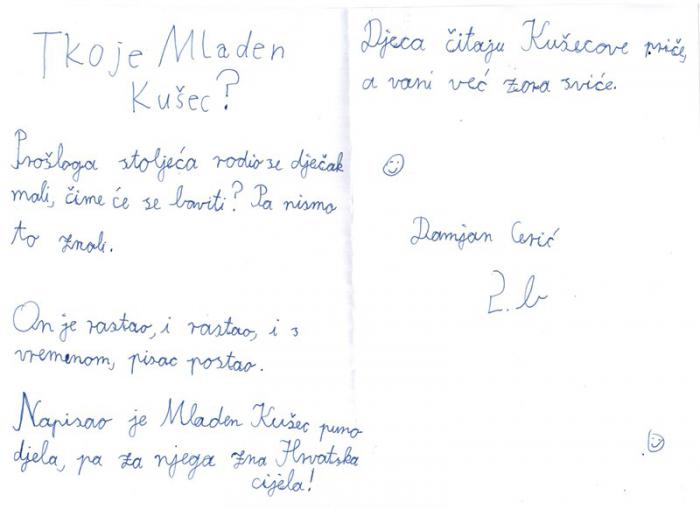 Tko je Mladen
Kušec?
Prošloga stoljeća rodio se dječak
mali, čime će se baviti? Pa nismo
to znali.
On je rastao, i rastao, i s
vremenom, pisac postao.
Napisao je Mladen Kušec puno
djela, pa za njega zna Hrvatska
cijela!
Djeca čitaju Kušecove priče,
a vani već zora sviće.
Damjan Cerić
2. b